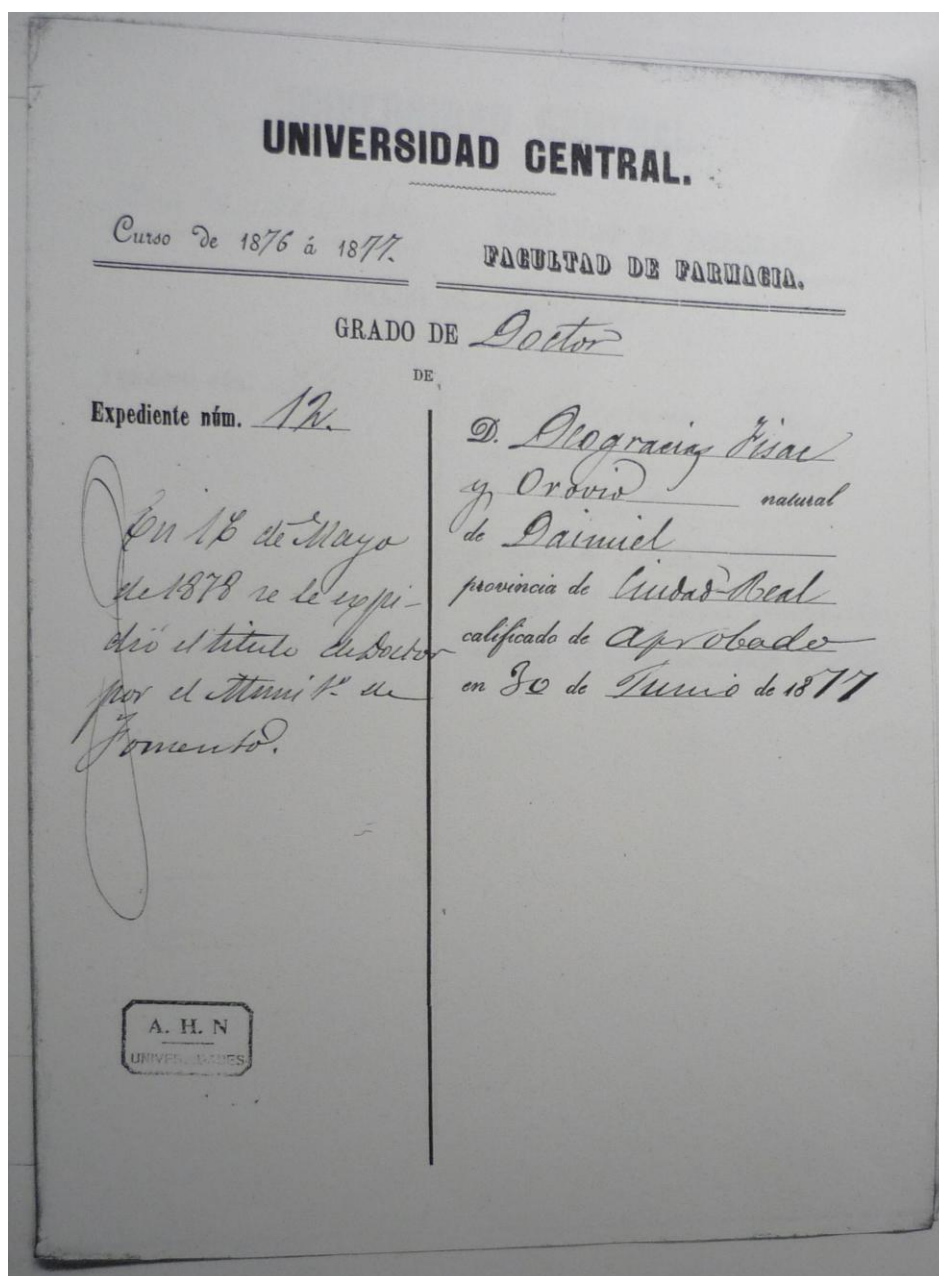 UNIVERSIDAD CENTRAL.
Curso de 1876 á 1877.
FACULTAD DE FARMACIA.
GRADO DE Doctor
DE
Expediente núm. 12.
En de Mayo
de 1878 se le expi-
dió el titulo de Doctor
por el de
Fomento.
D. Deogracias Fisac
y Orovio natural
de Daimiel
provincia de Ciudad-Real
calificado de aprobado
en 30 de Junio de 1877
A. H. N
UNIVERSIDADES